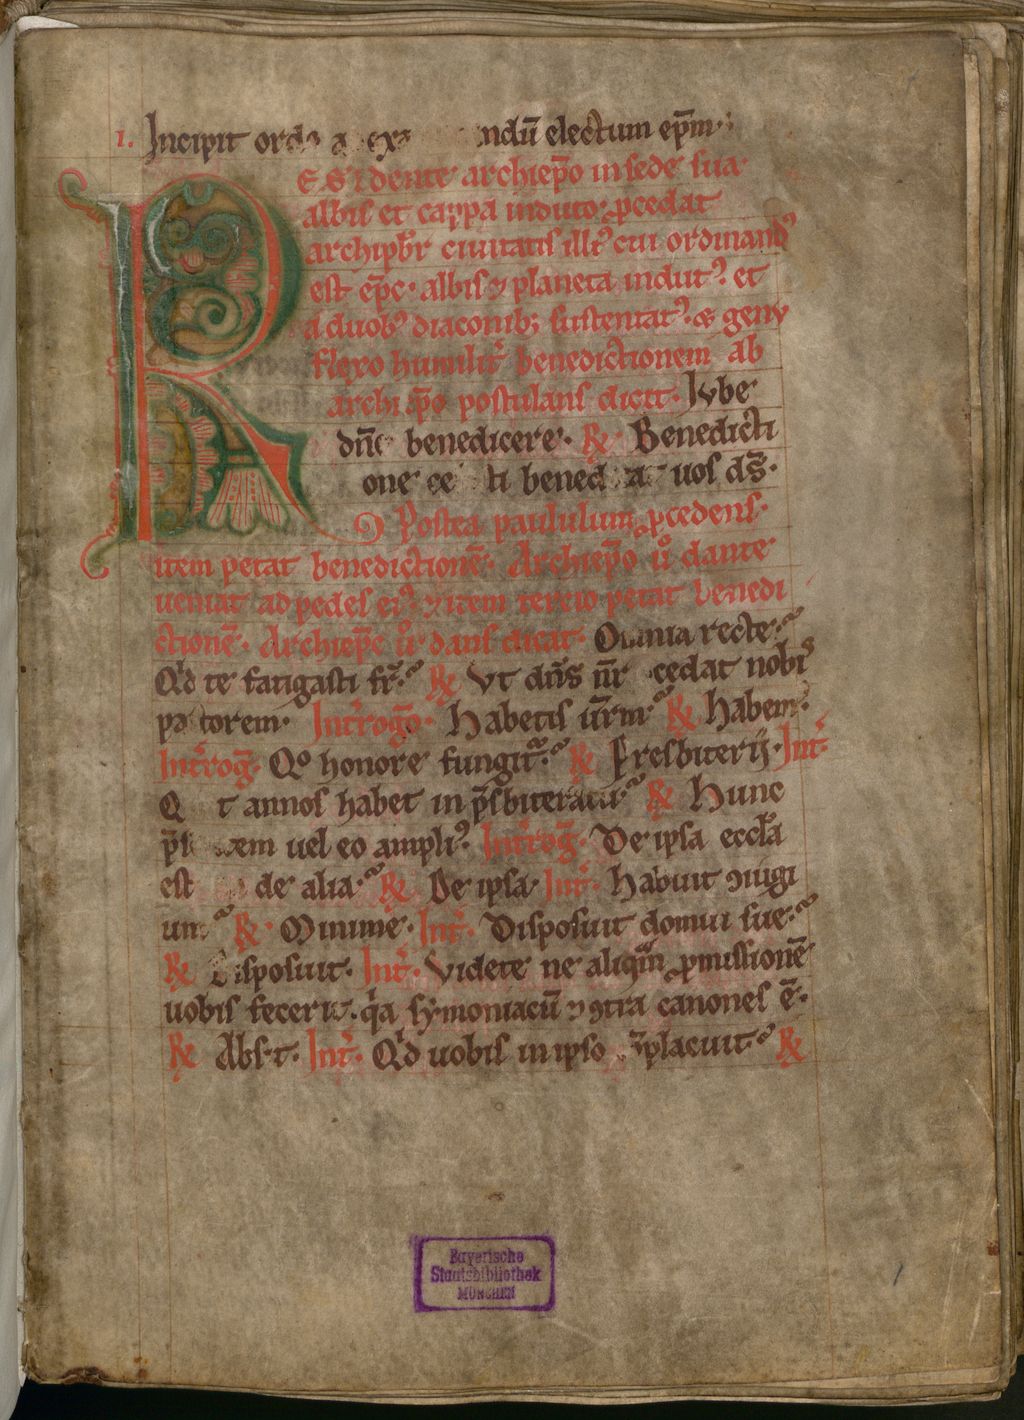 1. Incipit ordo a ex ndū electum ep̄m
RESIdente archiep̄o in sede sua
albis et cappa induto· ꝓcedat
archipbr̄ ciuitatis illiꝰ cui ordinandꝰ
est ep̄c· albis ⁊ planeta indutꝰ· et
a duobꝰ diaconibꝫ sustentatꝰ· & genu
flexo humilit̾ benedictionem ab
archiep̄o postulans dicit· Iube
dn̄e benedicere· ℟ Benedicti
one ce ti bened a uos ds̄·
Postea paululum ꝓcedens·
item petat benedictionē· Archiep̄o u̾o dante
ueniat ad pedes eiꝰ· ⁊ item tercio petat benedi
ctionē· Archiep̄c u̾o dans dicat· Omnia recte·
Qd̾ te fatigasti fr̄· ℟ Vt dn̄s nr̄ cedat nobis
pastorem· Int̾rogo̅· Habetis ur̄m ℟ Habem·
Int̾rog̅· Qo honore fungit̾· ℟ Presbiterij· Int̾·
Q t annos habet in p̄sbiteratu· ℟ Hunc
uel eo ampliꝰ· Int̾rog̅· De ipsa eccl̾a
est de alia· ℟ De ipsa· Int̾· Habuit ꝯiugi
um ℟· Minime· Int̾· Disposuit domui sue·
℟ Disposuit· Int̾· Videte ne aliquam ꝓmissionē
uobis fecerit· qa symoniacū ⁊ ꝯtra canones ē·
℟ Absit· Int̾· Qd̾ uobis in ipso ꝯplacuit· ℟
Bayerische
Staatsbibliothek
MÜNCHEN